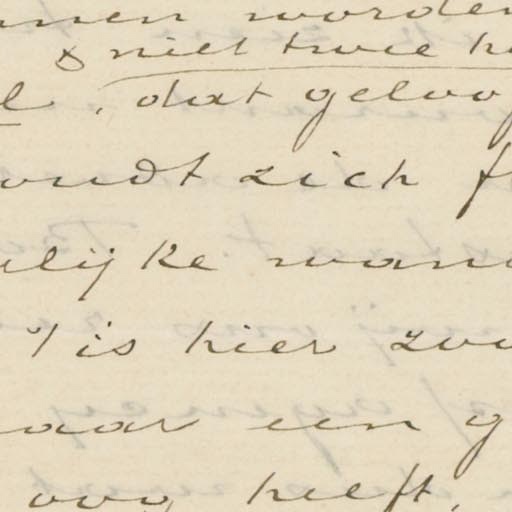 men worden
& niet twee h
l, dat geloo
oudt zich f
elijke wan
't is hier zoo
aar een g
oog heeft,